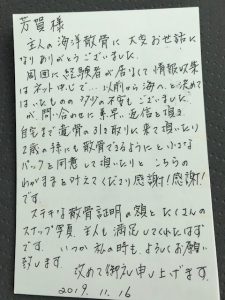 芳賀様
主人の海洋散骨に大変お世話に
なりありがとうございました。
周囲に経験者が居なくて情報収集
はネット中心で…以前から海へと決めて
はいたものの多少の不安もございました
が、問い合わせに素早い返信を頂き
自宅まで遺骨の引き取りに来て頂いたり
2歳の孫にも散骨できるようにと小さな
パックを用意して頂いたりと こちらの
わがままを叶えてくださり感謝!感謝!
です。
ステキな散骨証明の額とたくさんの
スナップ写真、主人も満足してくれたはず
です。いつか私の時も、よろしくお願い
致します。
改めて御礼申し上げます。
2019.11.16